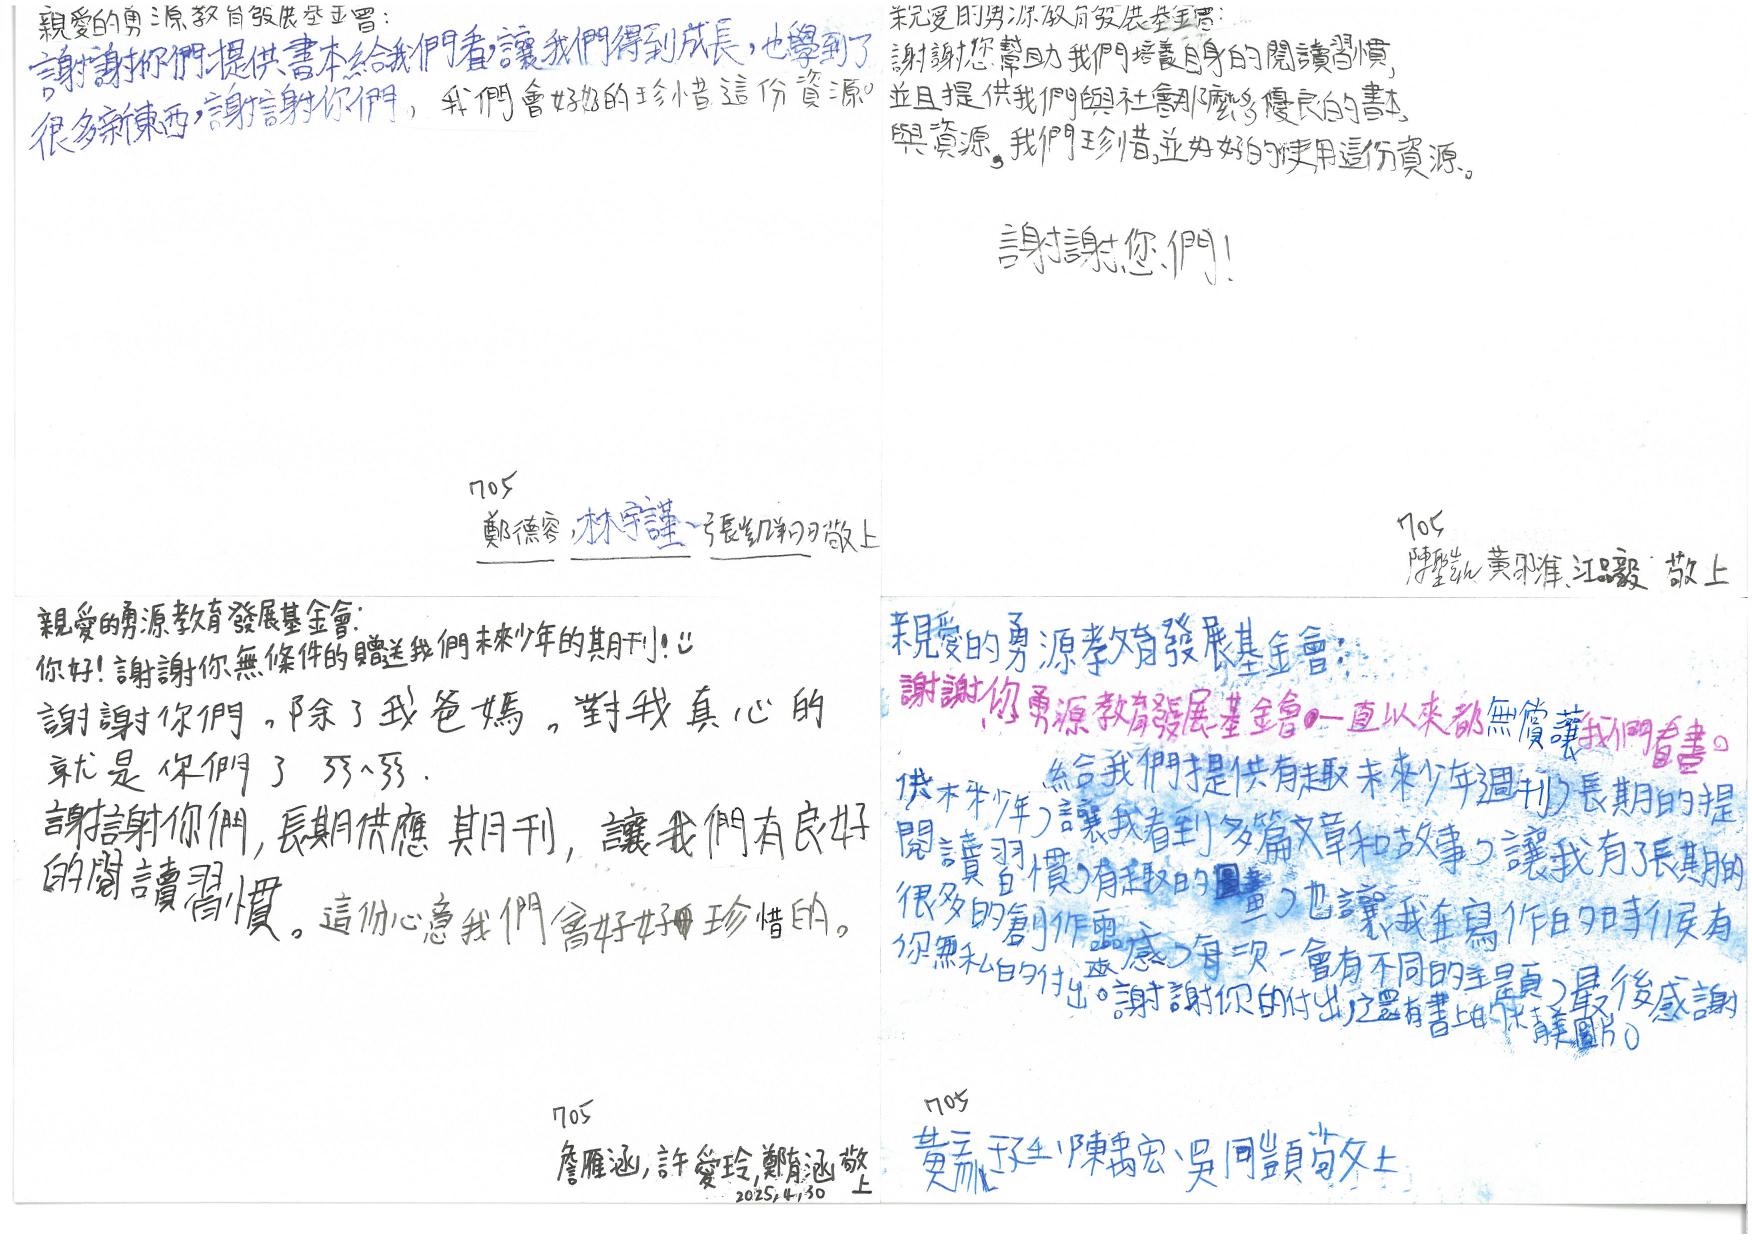 親愛的勇源教育發展基金會:
謝謝你們提供書本給我們看,讓我們得到成長,也學到了
很多新東西,謝謝你們,我們會好好的珍惜這份資源。
705
鄭德容,林宇謹、張凱翔敬上
親愛的勇源教育發展基金會:
謝謝您幫助我們培養自身的閱讀習慣,
並且提供我們與社會那麼多優良的書本,
與資源。我們珍惜,並好好的使用這份資源。
謝謝您們!
705
黃 江品毅 敬上
親愛的勇源教育發展基金會:
你好!謝謝你無條件的贈送我們未來少年的期刊!
謝謝你們。除了我爸媽。對我真心的
就是你們了ㄎㄎ^ㄎㄎ.
謝謝你們,長期供應期刊,讓我們有良好
的閱讀習慣。這份心意我們會好好珍惜的。
705
詹雁涵,許愛玲,鄭有涵敬上
2025,4,30
親愛的勇源孝教育發展基金會:
謝謝你勇源教育發展基金會。一直以來都無償讓我們看書。
給我們提供有趣未來少年週刊,長期的提
供未來少年,讓我看到多篇文章和故事,讓我有了長期的
閱讀習慣,有趣的圖畫,也讓我在寫作的時候有
很多的創作靈感,每次一會有不同的主題,最後感謝
你無私的付出。謝謝你的付出,還有書上的精美圖片。
705
黃 陳禹宏、吳 敬上